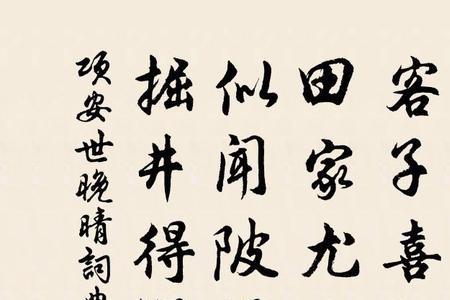 客子喜
田家尤
似闻陂
掘井得
项安世晚晴词